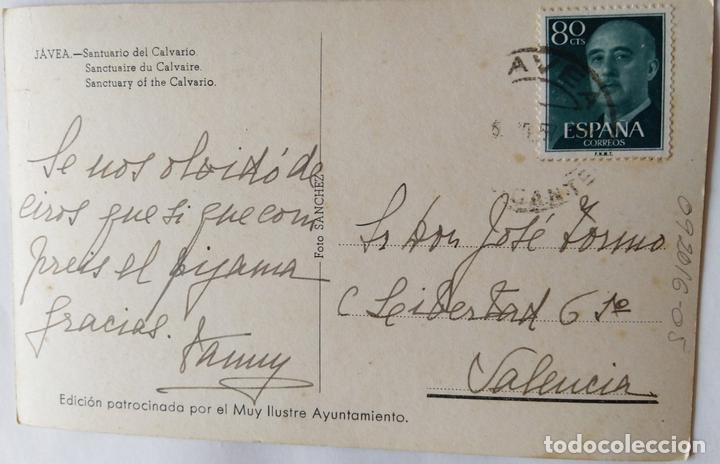 JÁVEA.—Santuario del Calvario.
Sanctuaire du Calvaire.
Sanctuary of the Calvario.
Se nos olvidó de
ciros que si que com
preis el pijama
Gracias.
Fanny
Foto SANCHEZ
80 CTS
ESPAÑA
CORREOS
F.N.M.T.
AVEA
CANTE
Sr Don José Tormo
C Libertad 6 1º
Valencia
092016-05
Edición patrocinada por el Muy Ilustre Ayuntamiento.
todocoleccion
todocoleccion.net